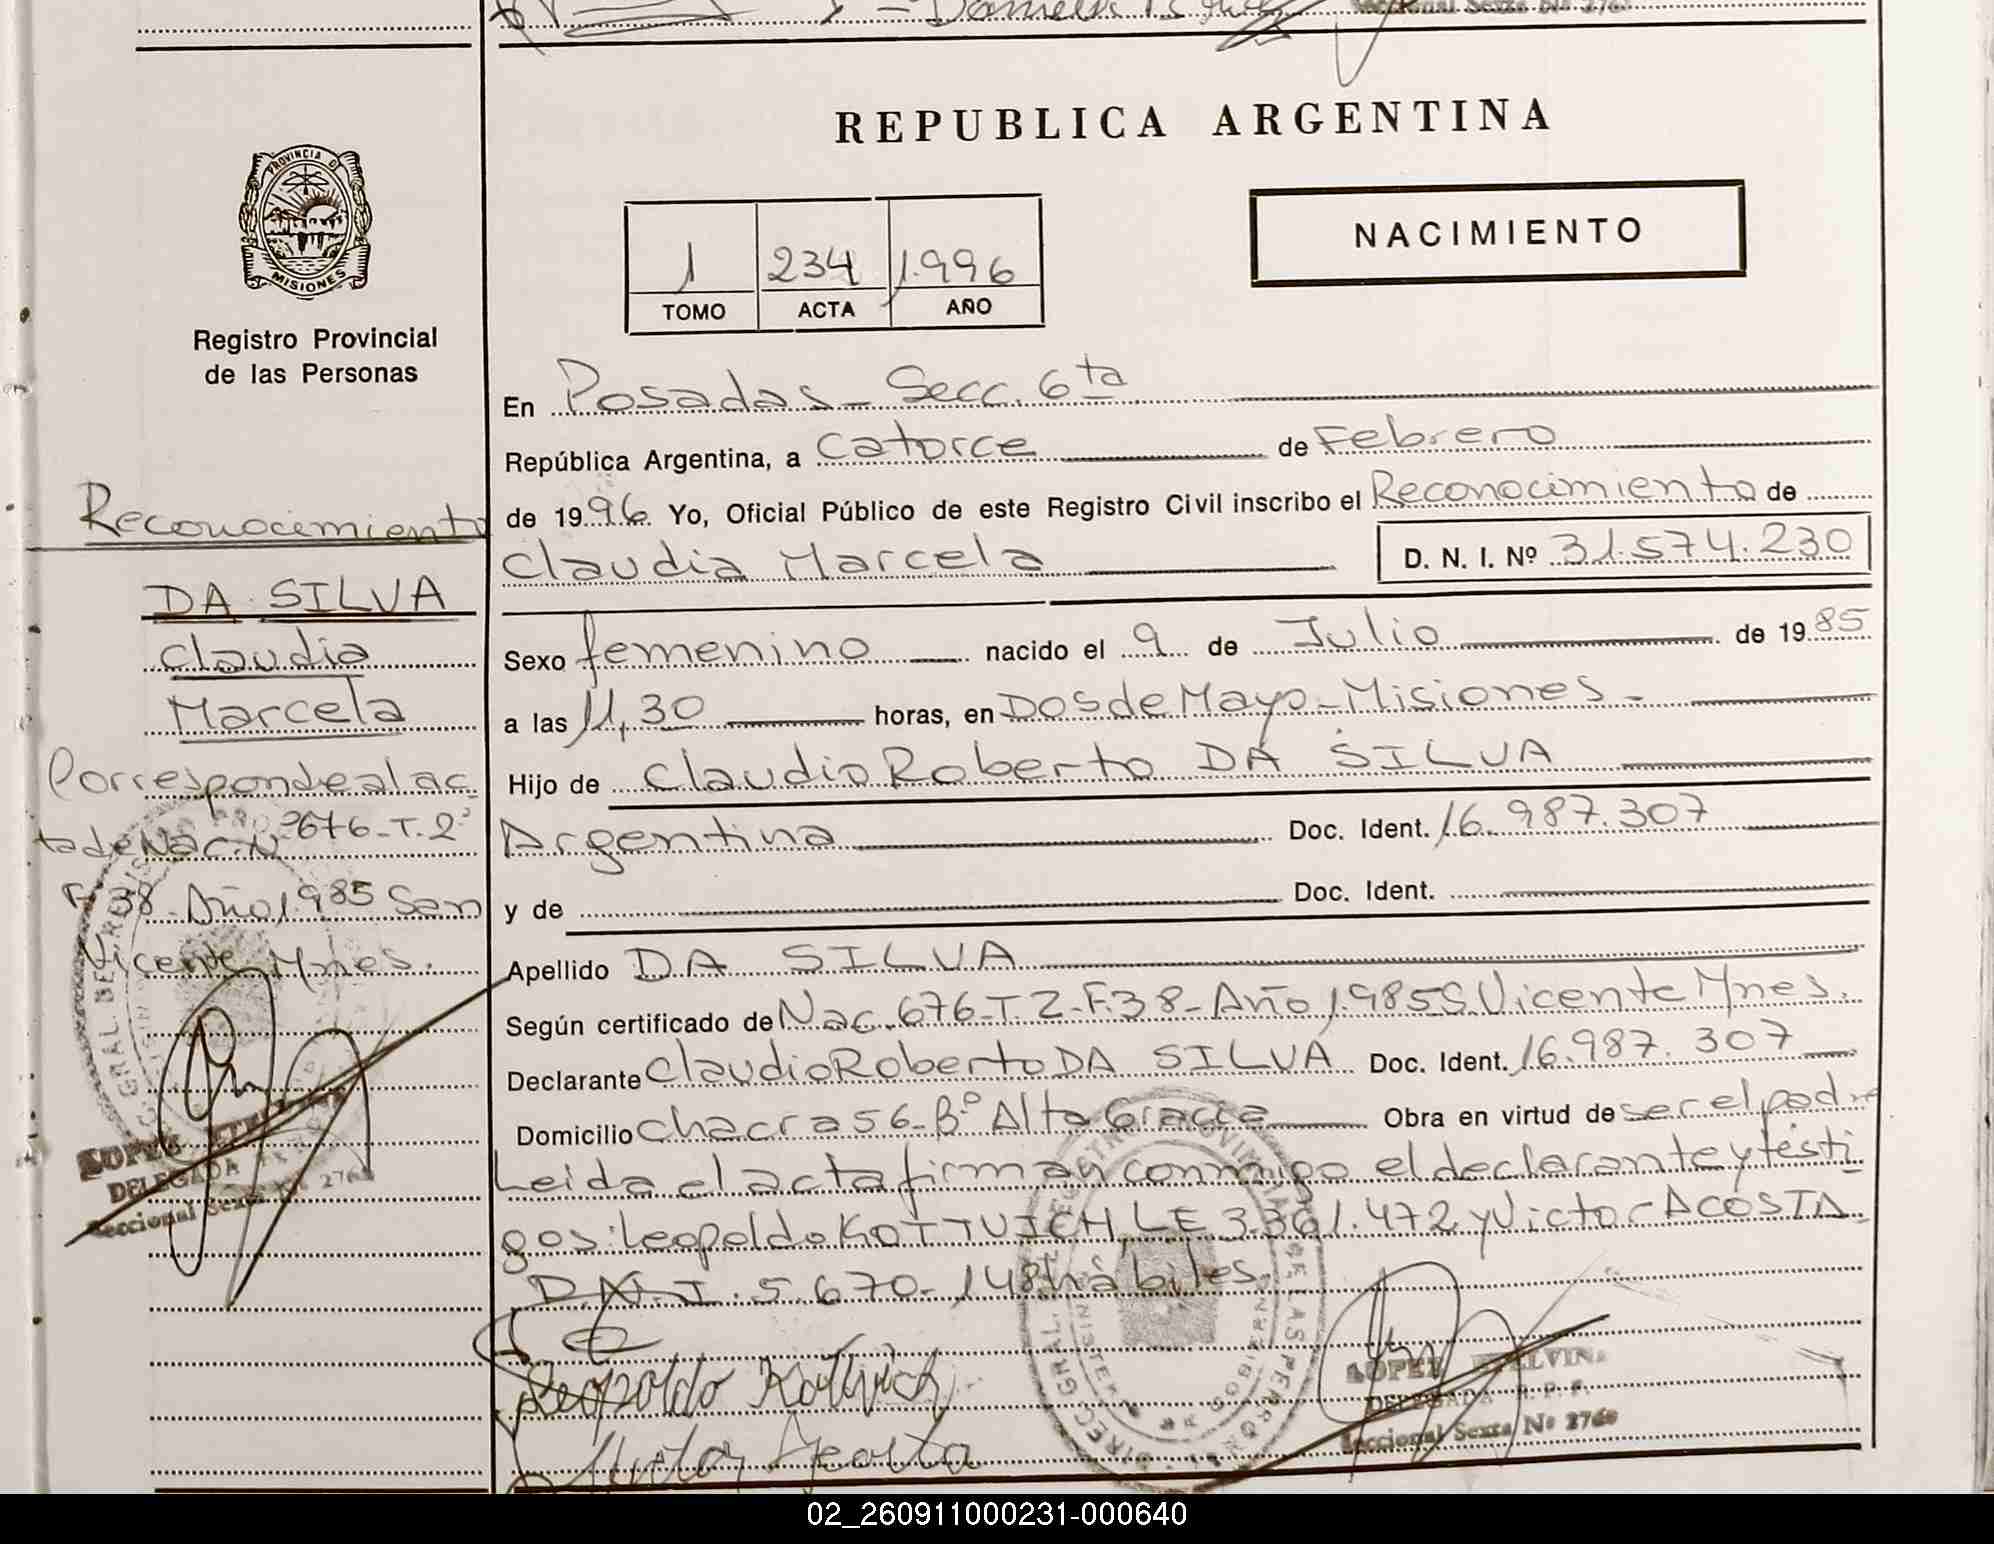 Seccional Sexta Nº 2768
REPUBLICA ARGENTINA
PROVINCIA DE
MISIONES
NACIMIENTO
1 234 1.996
TOMO ACTA AÑO
Registro Provincial
de las Personas
Reconocimiento
DA SILVA
Claudia
Marcela
Corresponde al ac
ta de Nac. Nº 676-T.2º
F-38-Año 1.985 San
Vicente Mnes.
LOPEZ
DELEGADA
Seccional Sexta Nº 2768
En Posadas - Secc. 6ta
República Argentina, a Catorce de Febrero
de 1996 Yo, Oficial Público de este Registro Civil inscribo el Reconocimiento de
Claudia Marcela D. N. I. Nº 31.574.230
Sexo femenino nacido el 9 de Julio de 1985
a las 11,30 horas, en Dos de Mayo - Misiones -
Hijo de Claudio Roberto DA SILVA
Argentina Doc. Ident. 16.987.307
y de Doc. Ident.
Apellido DA SILVA
Según certificado de Nac. 676-T.2-F.38-Año 1.985 S. Vicente Mnes.
Declarante Claudio Roberto DA SILVA Doc. Ident. 16.987.307
Domicilio Chacra 56-Bº Alta Gracia Obra en virtud de ser el padre
Leida el acta firman conmigo el declarante y testi
gos: Leopoldo KOTTVICH, LE 3.361.472 y Victor ACOSTA
D.N.I. 5.670.148 hábiles.
Leopoldo Kottvich
Victor Acosta
LOPEZ ETELVINA
DELEGADA R.P.P.
Seccional Sexta Nº 2768
02_260911000231-000640